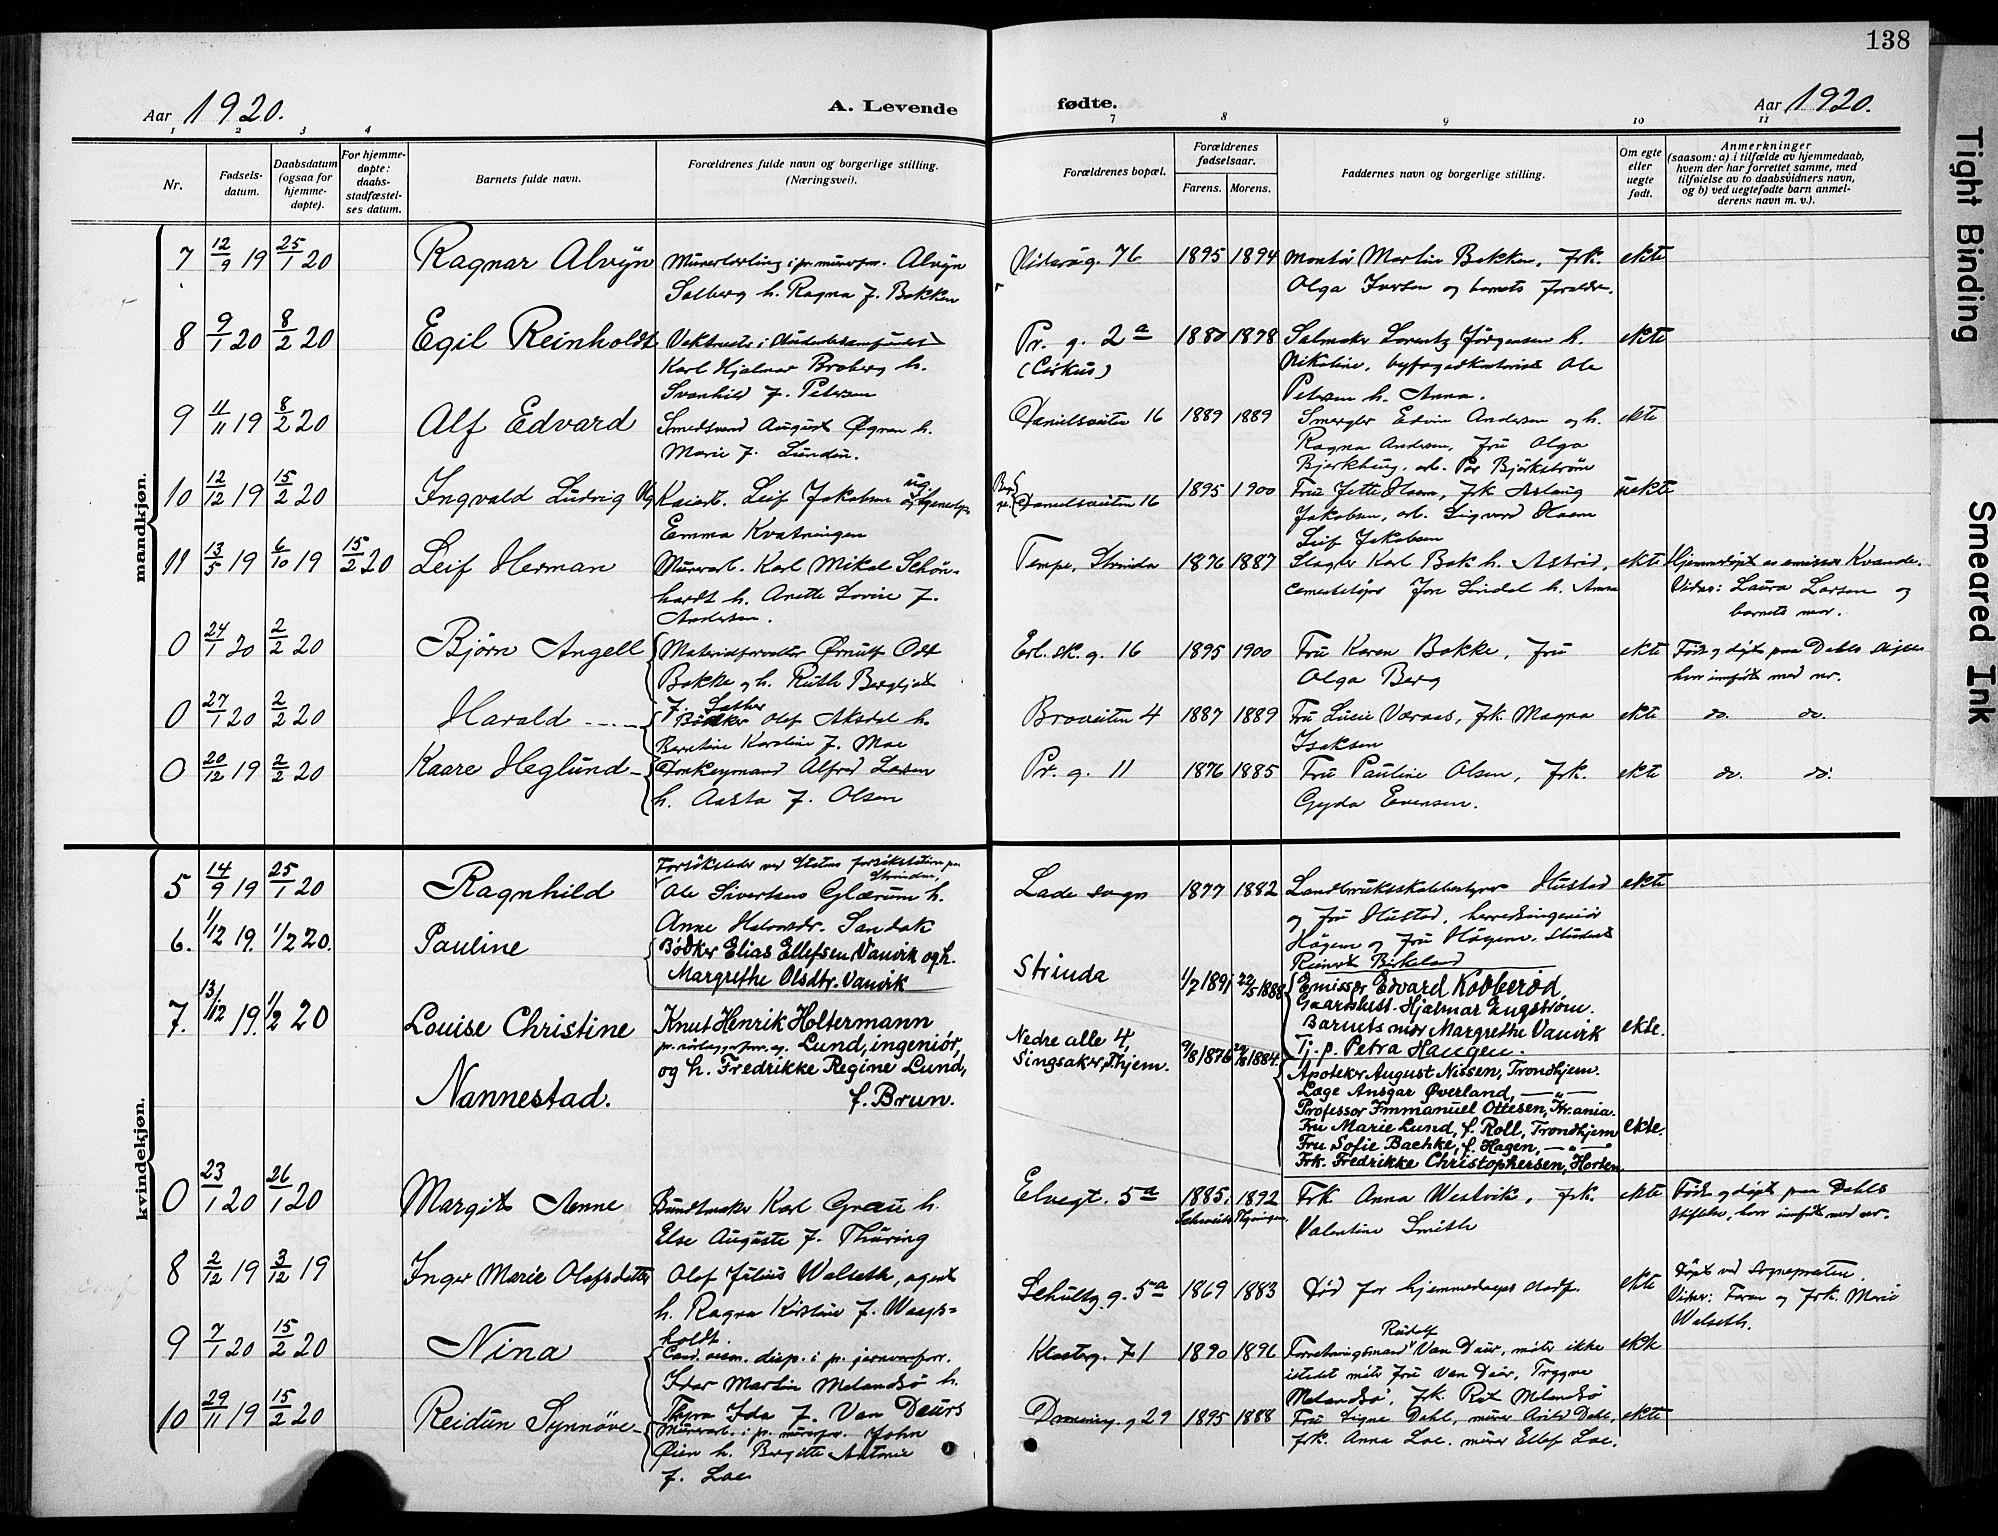 138
Aar 1920. A. Levende fødte. Aar 1920.
1 2 3 4 7 8 9 10 11
Nr.
Fødsels-
datum.
Daabsdatum
(ogsaa for
hjemme-
døpte).
For hjemme-
døpte:
daabs-
stadfæstel-
ses datum.
Barnets fulde navn.
Forældrenes fulde navn og borgerlige stilling.
(Næringsvei).
Forældrenes bopæl.
Forældrenes
fødselsaar.
Farens. Morens.
Faddernes navn og borgerlige stilling.
Om egte
eller
uegte
født.
Anmerkninger
(saasom: a) i tilfælde av hjemmedaab,
hvem der har forrettet samme, med
tilføielse av to daabsvidners navn,
og b) ved uegtefødte barn anmel-
derens navn m. v.).
mandkjøn.
7 12/9 19 25/1 20 Ragnar Alvyn Murerlærling i pr. murerforr. Alvyn
Solberg h. Ragna f. Bakken
76 1895 1894 Montør Martin Bakken, frk.
Olga Iversen og barnets forældre. ekte
8 9/1 20 8/2 20 Egil Reinholdt
Karl Hjalmar Broberg h.
Svanhild f. Petersen
Pr. g. 2a
(Cirkus)
1880 1878 Salmaker Lorentz Jørgensen h.
Nikoline, Ole
Petersen h. Anna. ekte
9 11/11 19 8/2 20 Alf Edvard Smedsvend August Øgren h.
Marie f. Lundin.
Danielsveiten 16 1889 1889 Edvin Andersen og h.
Ragna Andersen, fru Olga
Bjerkhaug, arb. Per Bjørkstrøm ekte
10 12/12 19 15/2 20 Ingvald Ludvig Kaiarb. Leif Jakobsen ug.
Emma Kvatningen
Danielsveiten 16 1895 1900 Fru Jette Haam, frk Aslaug
Jakobsen, arb. Sigvard Haam
Leif Jakobsen uekte
11 13/5 19 6/10 19 15/2 20 Leif Herman Murerarb. Karl Mikal Schøn-
hardt h. Anette Lovise f.
Andersen.
Tempe, Strinda 1876 1887 Slagter Karl Bak h. Astrid,
cementstøper Jon Lindal h. Anna ekte
Hjemmedøpt av emissær Kvande.
Vidner: Laura Larsen og
barnets mor.
0 24/1 20 2/2 20 Bjørn Angell Materialforvalter Ørnulf Ott
Bakke og h. Ruth Bergljot
f. Sæther
Erl. sk. g. 16 1895 1900 Fru Karen Bakke, fru
Olga Berg ekte
Født og døpt paa Dahls stiftelse
hvor indført med nr.
0 27/1 20 2/2 20 Harald Bødker Olof Aksdal h.
Berntine Karoline f. Moe
Broveiten 4 1887 1889 Fru Lucie Væraas, frk. Magna
Isaksen ekte do. do.
0 20/12 19 2/2 20 Kaare Heglund Donkeymand Alfred Larsen
h. Aasta f. Olsen
Pr. g. 11 1876 1885 Fru Pauline Olsen, frk.
Gyda Evensen. ekte do. do.
kvindekjøn.
5 14/9 19 25/1 20 Ragnhild Forsøksleder ved Statens forsøksstation paa
Strinden,
Ole Sivertsen Glærum h.
Anne Halvorsdr. Sandak
Lade sogn 1877 1882 Landbruksskolebestyrer Hustad
og fru Hustad, herredsingeniør
Högem og fru Högem. Student
Reinert Birkeland ekte
6. 1/12 19. 1/2 20. Pauline Bødker Elias Ellefsen Vauvik og h.
Margrethe Olsdtr. Vauvik
Strinda 1/7 1891 22/5 1888 Emissær Edvard Kobberød,
Gaardbest. Hjalmar Engstrøm.
Barnets mor Margrethe Vauvik
Tj. p. Petra Haugen. ekte.
7. 13/12 19. 1/2 20 Louise Christine
Nannestad.
Knut Henrik Holtermann
Lund, ingeniør,
og h. Fredrikke Regine Lund,
f. Brun.
Nedre alle 4,
Singsaker, Thjem.
9/8 1876 1884. Apoteker August Nissen, Trondhjem.
Læge Ansgar Øverland, —„—
Professor Emmanuel Ottesen, Kr.ania.
Fru Marie Lund, f. Roll, Trondhjem
Fru Sofie Bachke, f. Hagen, —„—
Frk. Fredrikke Christophersen, Horten. ekte.
0 23/1 20 26/1 20 Margit Anne Buntmaker Karl Grau h.
Else Auguste f. Thüring
Elvegt. 5a 1885. 1892
Frk Anna Westvik, frk.
Valentine Smith ekte
Født og døpt paa Dahls
stiftelse, hvor indført med nr.
8 2/12 19 3/12 19 Inger Marie Olafsdatter Olaf Julius Walseth, agent
h. Ragna Kirstine f. Waags-
holdt.
Schultz g. 5a 1869 1883 Død før hjemmedaapens stadf. ekte
Døpt ved Sognepresten
Vidner: Faren og frk. Marie
Walseth.
9 7/1 20 15/2 20 Nina Cand. oecon. disp. i pr. jernvareforr.
Idar Martin Melandsö h.
Thyra Ida f. Van Deurs
Klosterg. 71 1890 1896 Forretningsmand Rudolf Van Deur, møter ikke
istedet møter fru Van Deur, Trygve
Melandsö, frk. Rut Melandsö ekte
10 29/11 19 15/2 20 Reidun Synnöve Murerarb. i pr. murerforr. John
Øien h. Bergitte Antonie
f. Loe
Dronning. g 29 1895 1888 Fru Signe Dahl, murer Arild Dahl,
frk. Anna Loe. murer Ellef Loe. ekte
Tight Binding
Smeared Ink